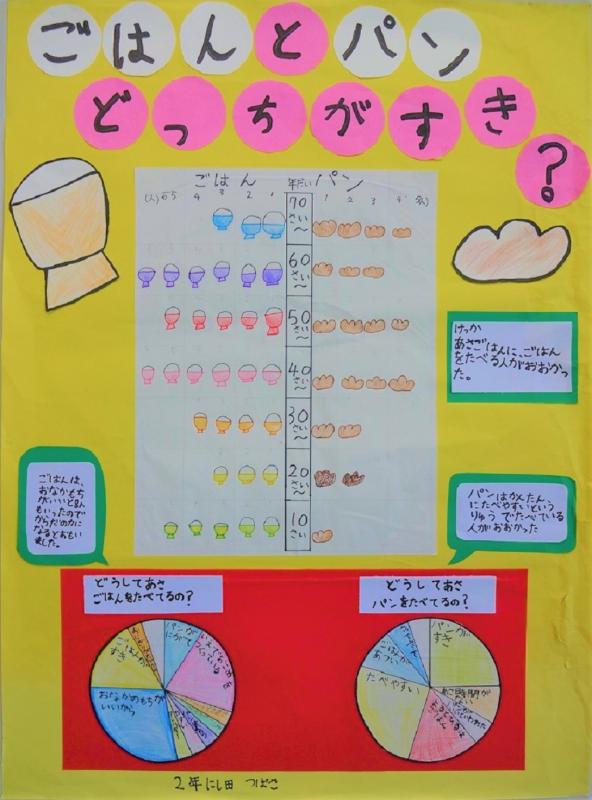 ごはんとパン
どっちがすき?
ごはん 年だい パン
(人) 6 5 4 3 2 1 1 2 3 4
70さい〜
60さい〜
50さい〜
40さい〜
30さい〜
20さい〜
10さい
けっか
あさごはんに、ごはん
をたべる人がおおかっ
た。
ごはんは、
おなかもち
がいいと8人
もいったので
からだのカに
なるとおもい
ました。
パンはかんたん
にたべやすいという
りゆうでたべている
人がおおかった
どうしてあさ
ごはんをたべてるの?
どうしてあさ
パンをたべてるの?
パンが
にがて
いえでおこめを
つくっている
おなかのもちが
いいから
ごはんが
すき
パンが
すき
あさ時間が
たべやすい
ごはんが
あつい
2年にし田 つばさ